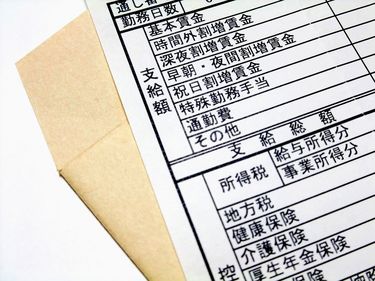 通し番
勤務日数
基本賃金
時間外割増賃金
深夜割増賃金
早朝・夜間割増賃金
祝日割増賃金
特殊勤務手当
通勤費
その他
支給額
支給総額
所得税
給与所得分
事業所得分
地方税
健康保険
介護保険
厚生年金保険
保険
控